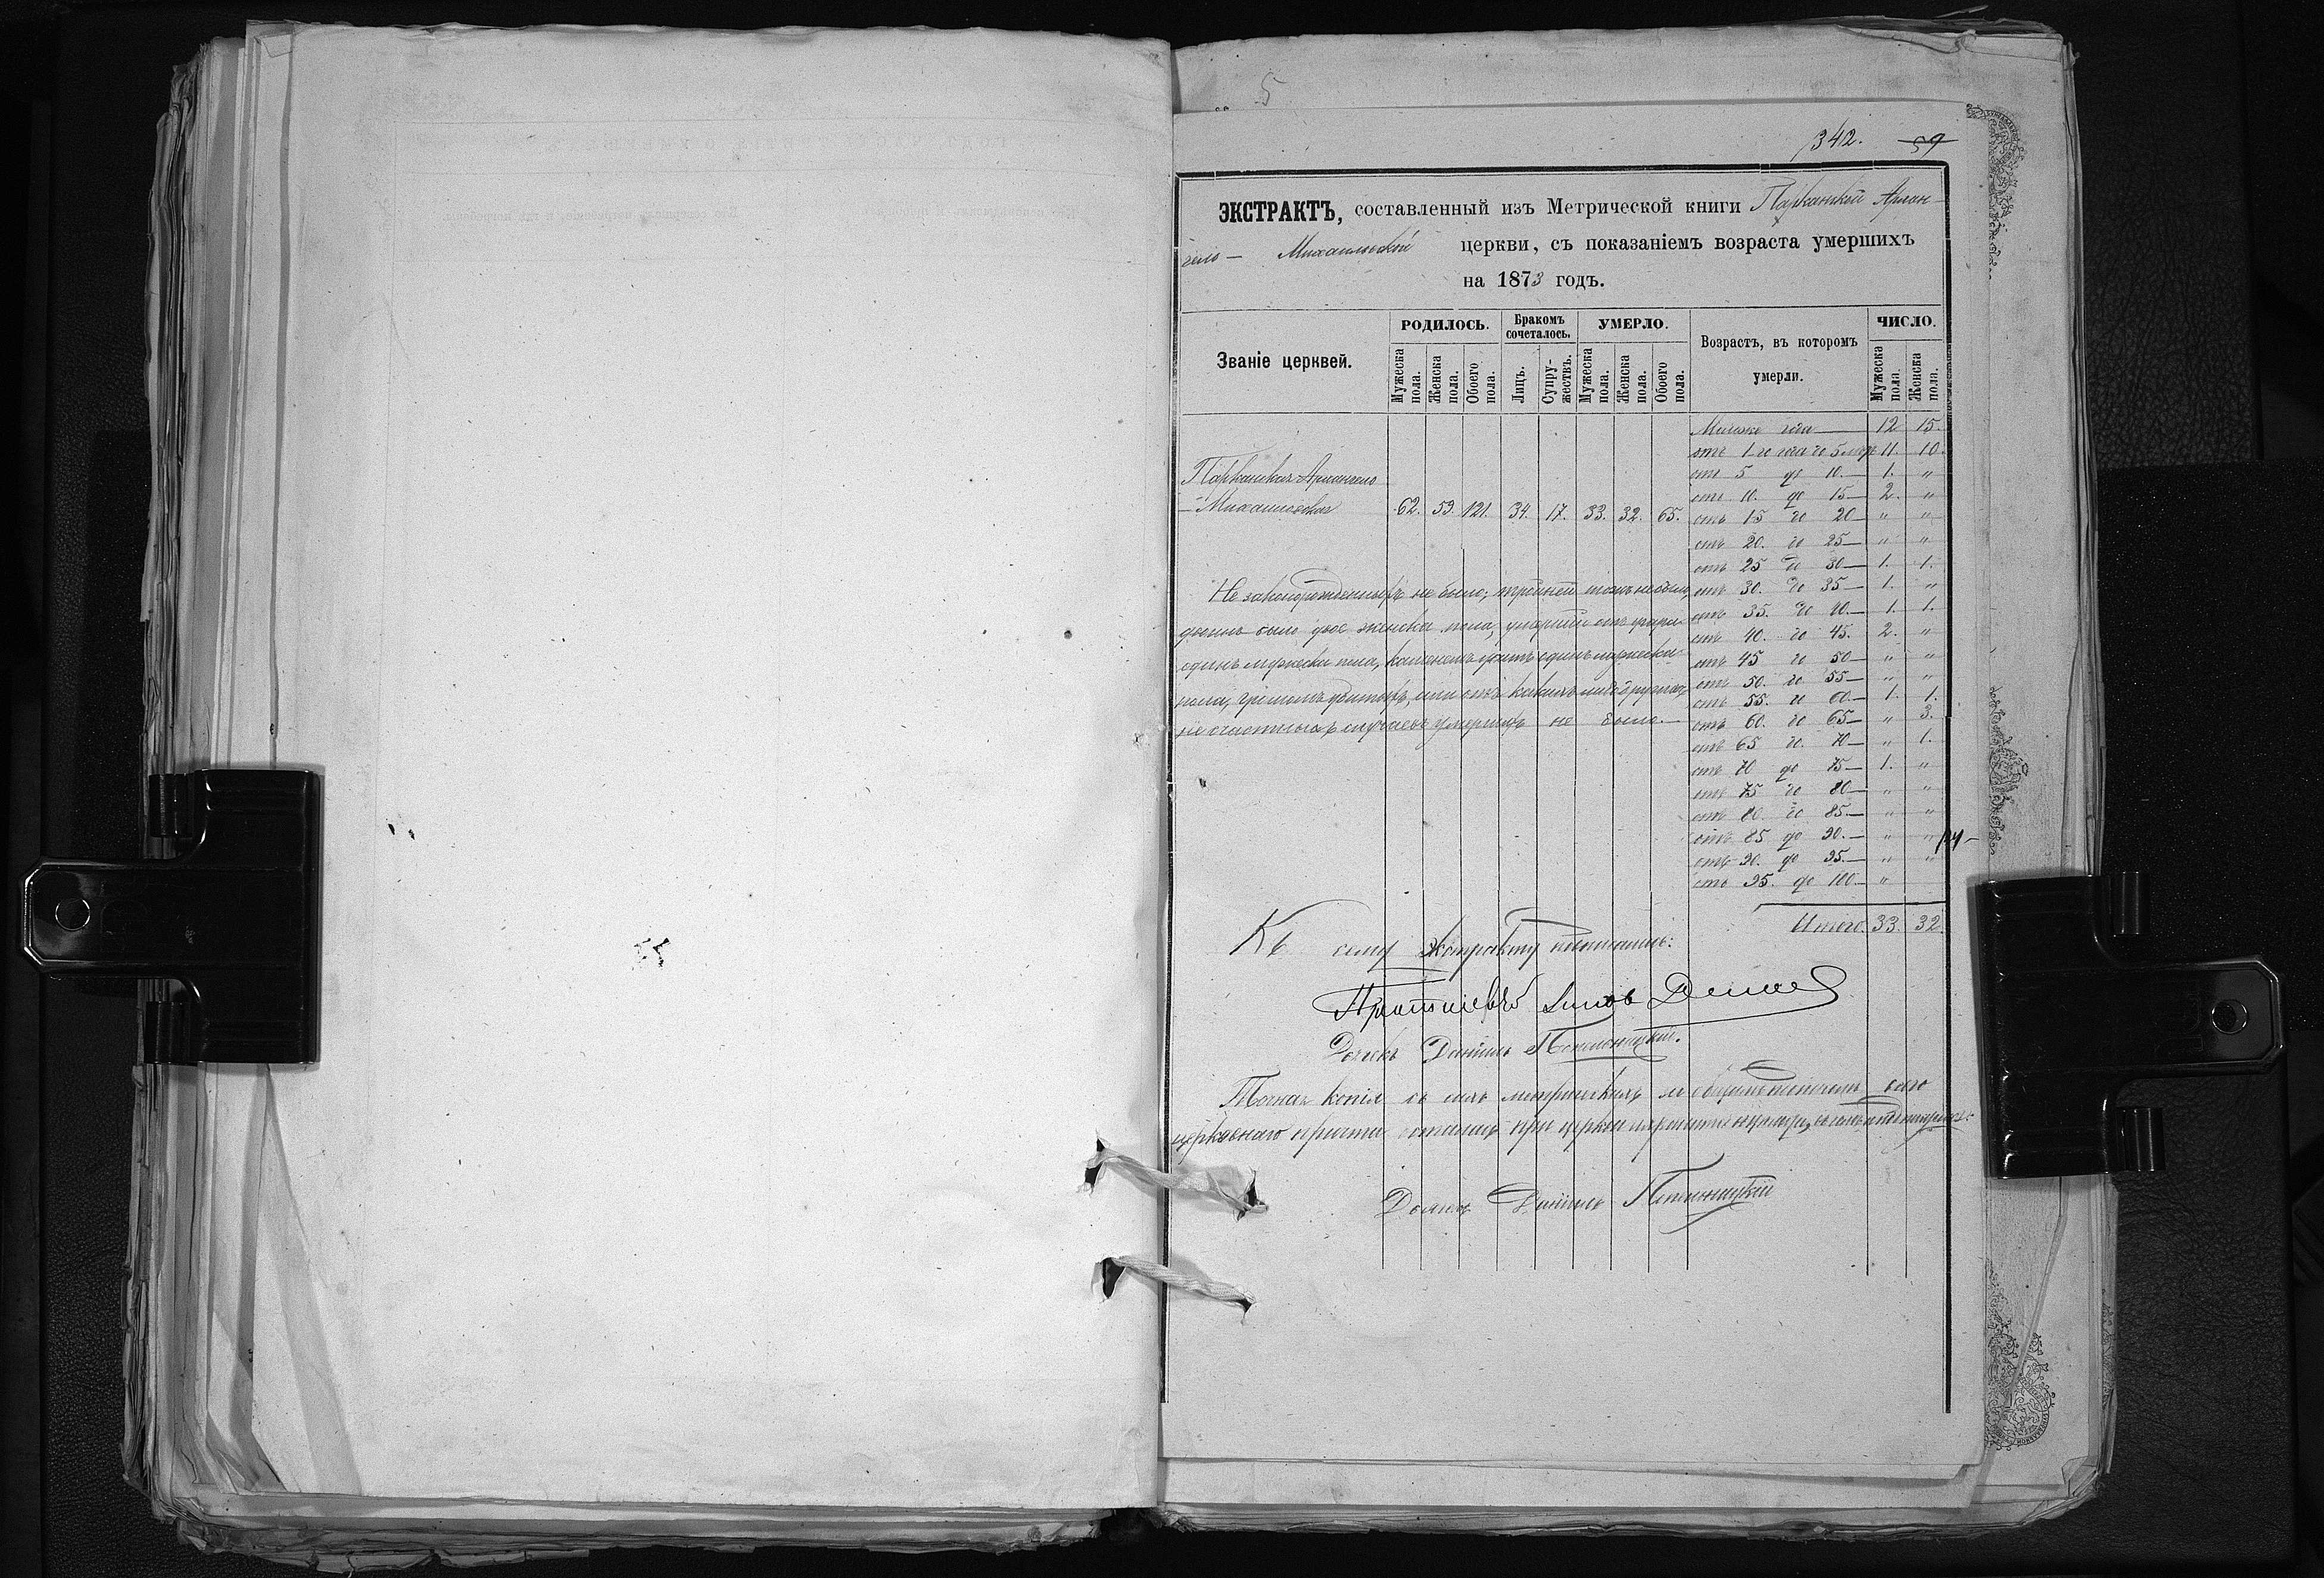 5
342. 59
ЭКСТРАКТЪ, составленный изъ Метрической книги Парканской Архан-
гело — Михаиловской церкви, съ показаніемъ возраста умершихъ
на 1873 годъ.
Званіе церквей. РОДИЛОСЬ. Бракомъ сочеталось. УМЕРЛО. Возрастъ, въ которомъ умерли. ЧИСЛО.
Мужеска пола. Женска пола. Обоего пола. Лицъ. Супружествъ. Мужеска пола. Женска пола. Обоего пола. Мужеска пола. Женска пола.
Парканская Архангело
— Михаиловская 62. 59. 121. 34. 17. 33. 32. 65.
Младше года — 12 15.
отъ 1 го года до 5 11. 10.
отъ 5 до 10. — 1. "
отъ 10. до 15 — 2. "
отъ 15 до 20 — " "
отъ 20. до 25 — " "
отъ 25 до 30 — 1. 1.
отъ 30. до 35 — 1. "
отъ 35. до 40. — 1. 1.
отъ 40. до 45. 2. "
отъ 45 до 50 — " "
отъ 50. до 55 — " "
отъ 55. до 60 — 1. 1.
отъ 60. до 65 — " 3.
отъ 65 до 70 — " 1.
отъ 70 до 75 — 1. "
отъ 75 до 80 — " "
отъ 80. до 85. — " "
отъ 85 до 90. — " "
отъ 90. до 95. — " "
отъ 95. до 100 — "
Итого. 33. 32.
Не законорожденныхъ не было; тройней тожъ не было,
двоинъ было двое женска пола, умерший отъ
одинъ мужеска пола, одинъ мужеска
пола, убитыхъ, или отъ какихъ либо другихъ
не счастныхъ случаевъ умершихъ не было. —
Къ сему Экстракту подписались:
Дьячекъ Даніилъ
Точная копія съ сихъ метрическихъ сего
церковнаго причта при церкви
Дьячекъ Даніилъ